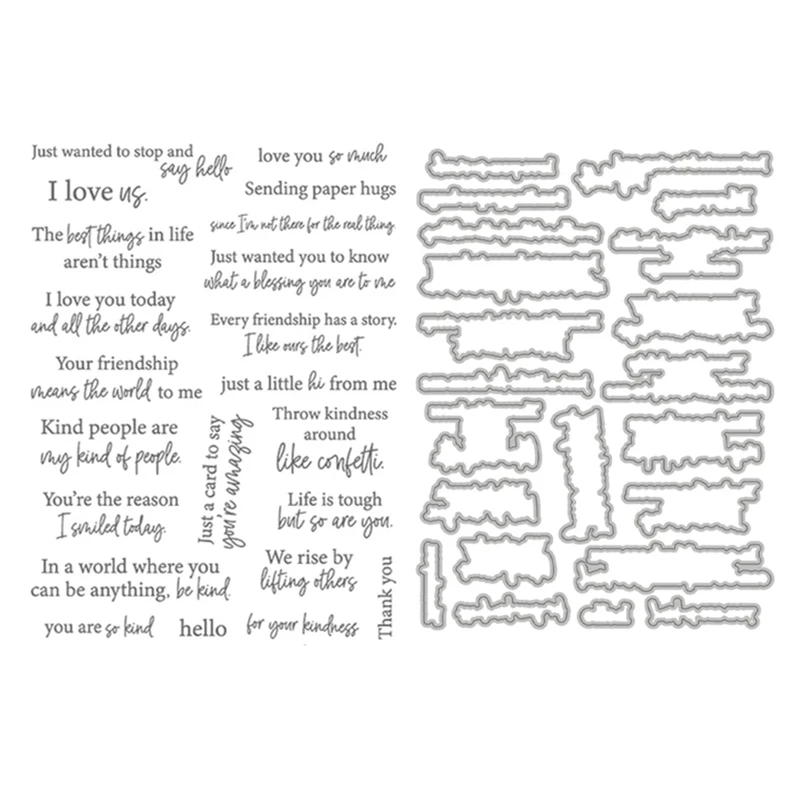 Just wanted to stop and
say hello
I love us.
The best things in life
aren't things
I love you today
and all the other days.
Your friendship
means the world to me
Kind people are
my kind of people.
You're the reason
I smiled today.
In a world where you
can be anything, be kind.
you are so kind
hello
love you so much
Sending paper hugs
since I'm not there for the real thing.
Just wanted you to know
what a blessing you are to me
Every friendship has a story.
I like ours the best.
just a little hi from me
Just a card to say
you're amazing
Throw kindness
around
like confetti.
Life is tough
but so are you.
We rise by
lifting others
for your kindness
Thank you